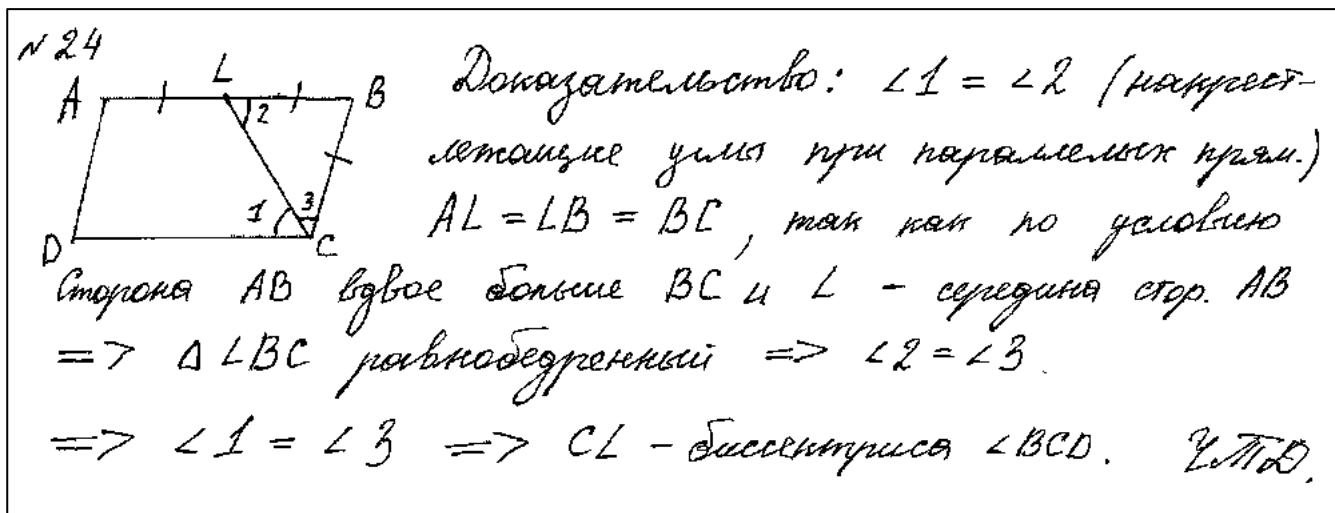 № 24
A L B
2
1 3
D C
Доказательство: ∠1 = ∠2 (накрест-
лежащие углы при параллельн прям.)
AL = LB = BC, так как по условию
Сторона AB вдвое больше BC и L - середина стор. AB
=> Δ LBC равнобедренный => ∠2 = ∠3.
=> ∠1 = ∠3 => CL - биссектриса ∠BCD. ЧТД.